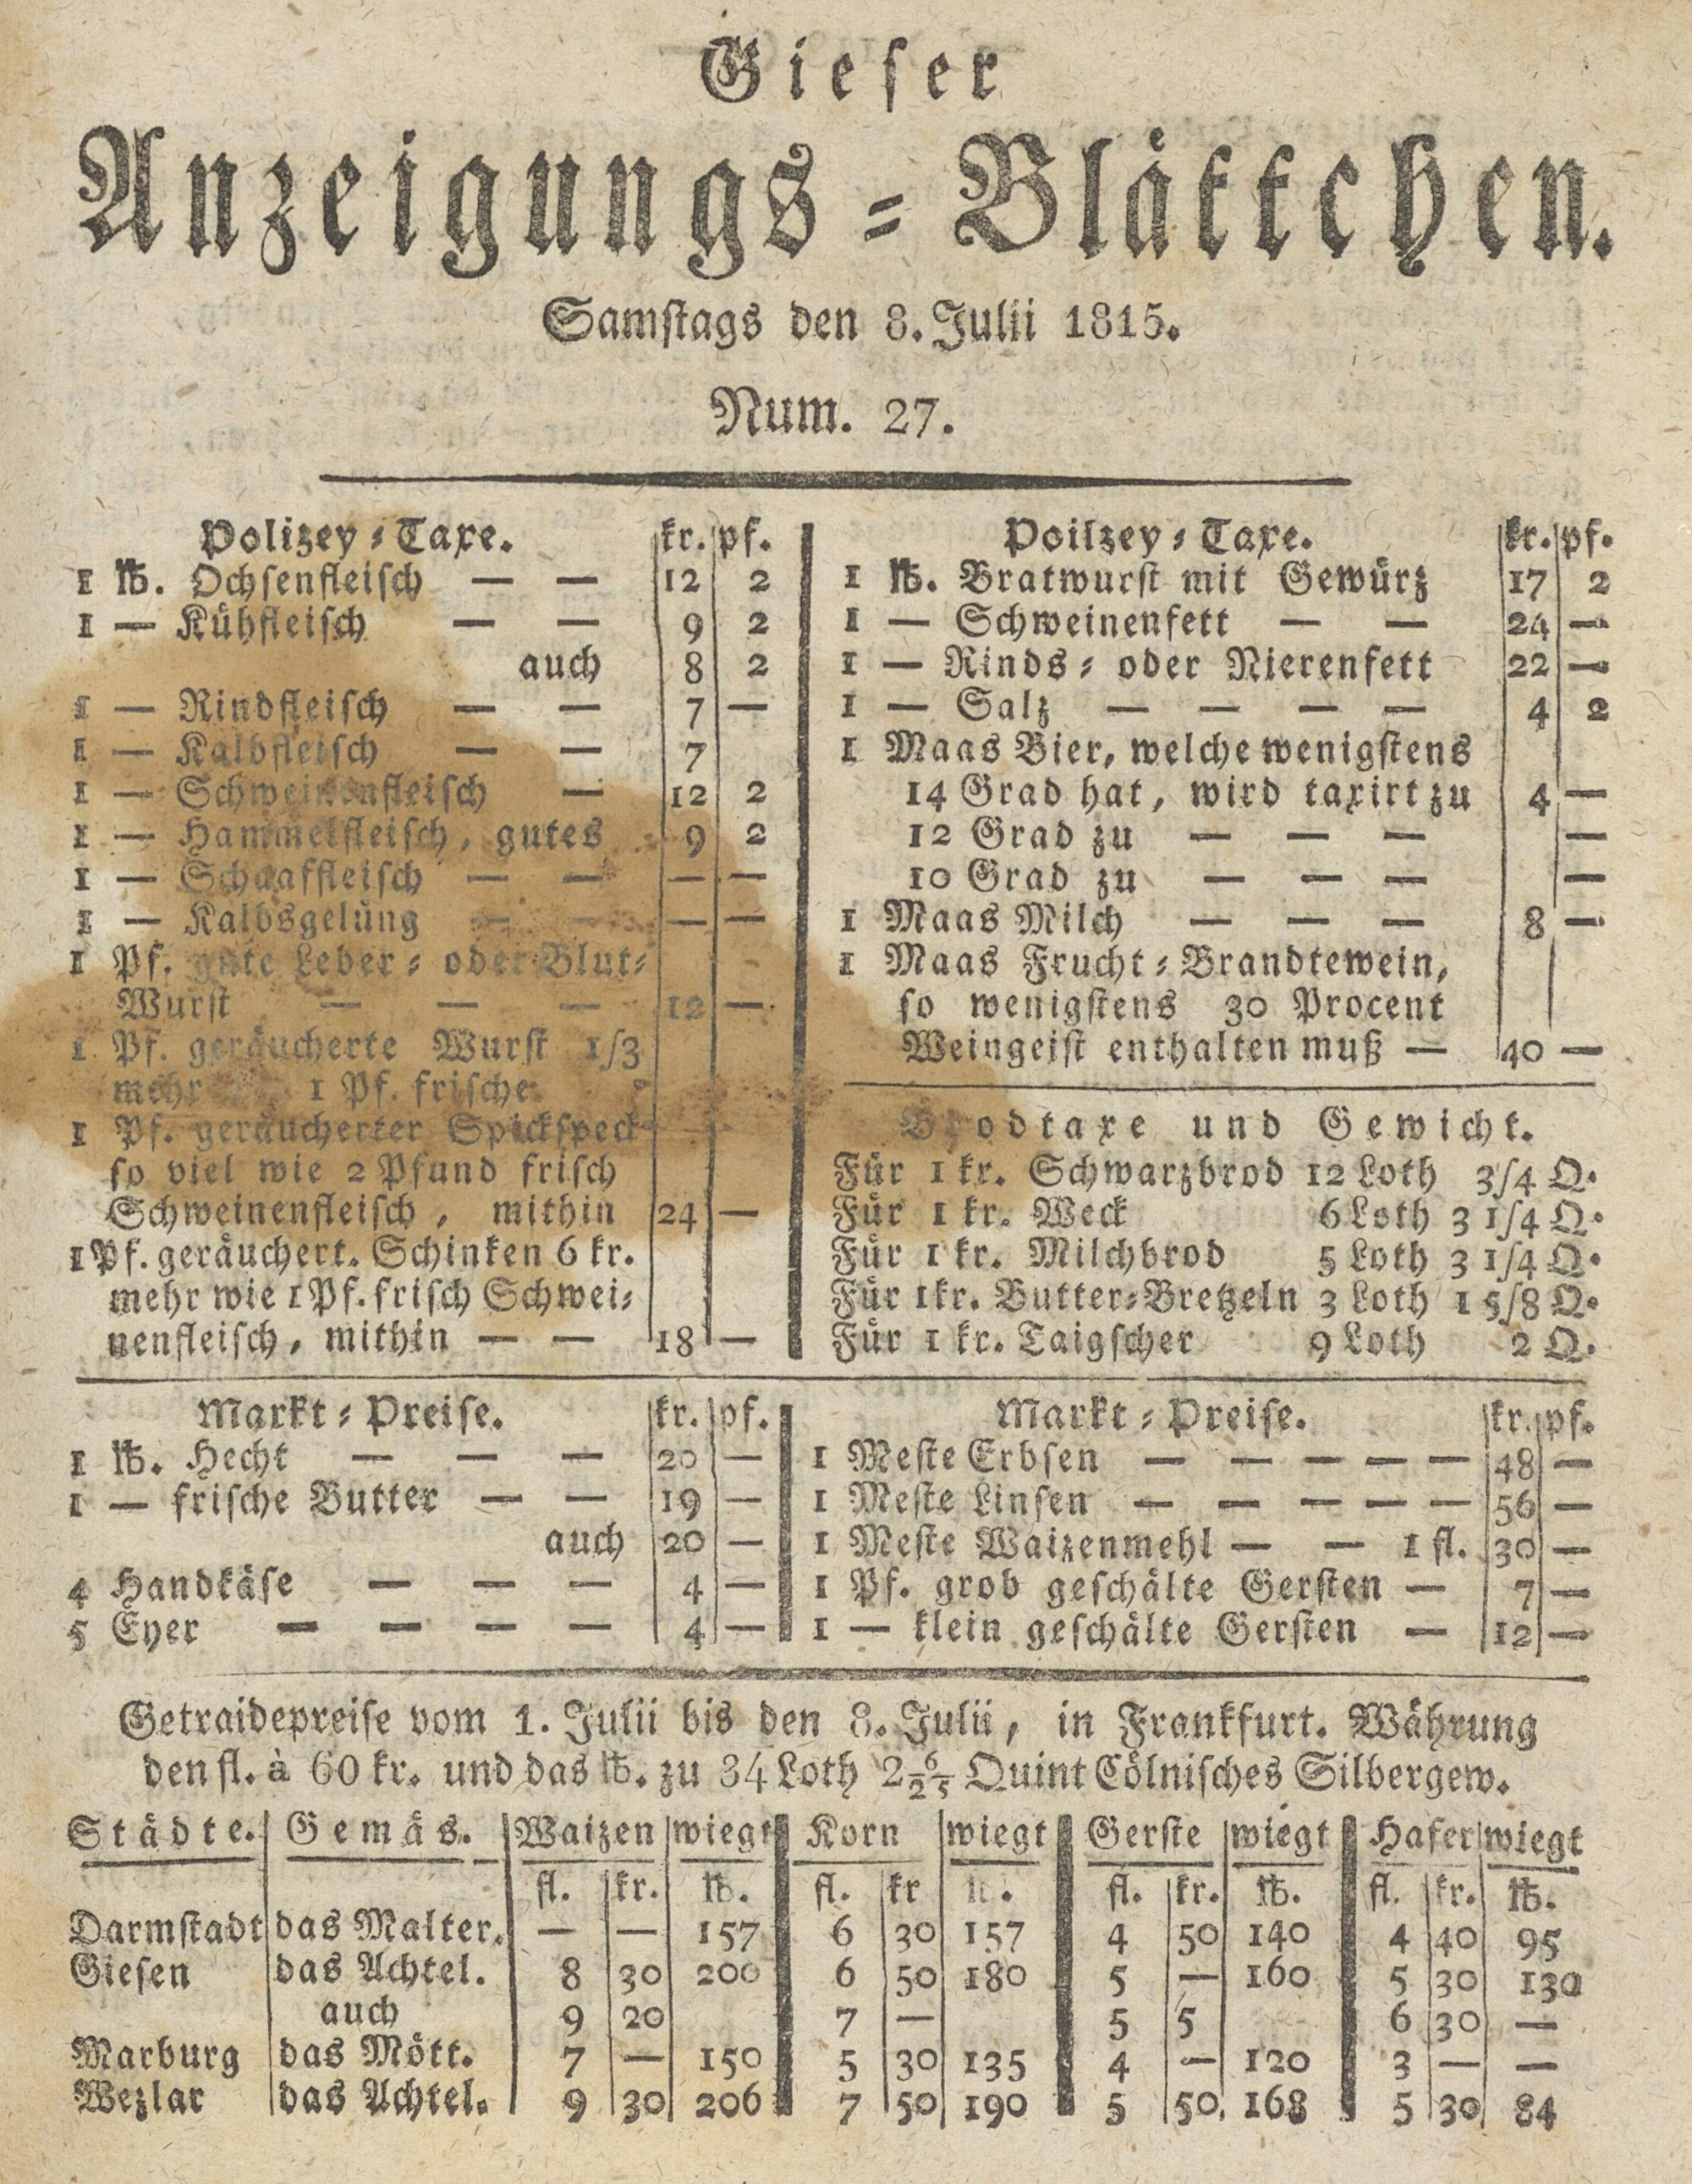 Gieser
Anzeigungs-Blättchen.
Samstags den 8. Julii 1815.
Num. 27.
Polizey-Taxe. kr. pf.
1 ℔. Ochsenfleisch — — 12 2
1 — Kühfleisch — — 9 2
auch 8 2
1 — Rindfleisch — — 7 —
1 — Kalbfleisch — — 7
1 — Schweinenfleisch — 12 2
1 — Hammelfleisch, gutes 9 2
1 — Schaaffleisch — — — —
1 — Kalbsgelüng — — — —
1 Pf. gute Leber- oder Blut-
Wurst — — — 12 —
1 Pf. geräucherte Wurst 1/3
mehr 1 Pf. frische
1 Pf. geräucherter Spickspeck
so viel wie 2 Pfund frisch
Schweinenfleisch, mithin 24 —
1 Pf. geräuchert. Schinken 6 kr.
mehr wie 1 Pf. frisch Schwei-
nenfleisch, mithin — — 18 —
Poilzey-Taxe. kr. pf.
1 ℔. Bratwurst mit Gewürz 17 2
1 — Schweinenfett — — 24 —
1 — Rinds- oder Nierenfett 22 —
1 — Salz — — — — 4 2
1 Maas Bier, welche wenigstens
14 Grad hat, wird taxirt zu 4 —
12 Grad zu — — — —
10 Grad zu — — — —
1 Maas Milch — — — 8 —
1 Maas Frucht-Brandtewein,
so wenigstens 30 Procent
Weingeist enthalten muß — 40 —
Brodtaxe und Gewicht.
Für 1 kr. Schwarzbrod 12 Loth 3/4 Q.
Für 1 kr. Weck 6 Loth 3 1/4 Q.
Für 1 kr. Milchbrod 5 Loth 3 1/4 Q.
Für 1 kr. Butter-Bretzeln 3 Loth 1 5/8 Q.
Für 1 kr. Taigscher 9 Loth 2 Q.
Markt-Preise. kr. pf.
1 ℔. Hecht — — — 20 —
1 — frische Butter — — 19 —
auch 20 —
4 Handkäse — — — 4 —
5 Eyer — — — — 4 —
Markt-Preise. kr. pf.
1 Meste Erbsen — — — — — 48 —
1 Meste Linsen — — — — — 56 —
1 Meste Waizenmehl — — 1 fl. 30 —
1 Pf. grob geschälte Gersten — 7 —
1 — klein geschälte Gersten — 12 —
Getraidepreise vom 1. Julii bis den 8. Julii, in Frankfurt. Währung
den fl. à 60 kr. und das ℔. zu 34 Loth 2 6/25 Quint Cölnisches Silbergew.
Städte. Gemäs. Waizen wiegt Korn wiegt Gerste wiegt Hafer wiegt
fl. kr. ℔. fl. kr fl. kr. ℔. fl. kr. ℔.
Darmstadt das Malter. — — 157 6 30 157 4 50 140 4 40 95
Giesen das Achtel. 8 30 200 6 50 180 5 — 160 5 30 130
auch 9 20 7 — 5 5 6 30 —
Marburg das Mött. 7 — 150 5 30 135 4 — 120 3 — —
Wezlar das Achtel. 9 30 206 7 50 190 5 50 168 5 30 84